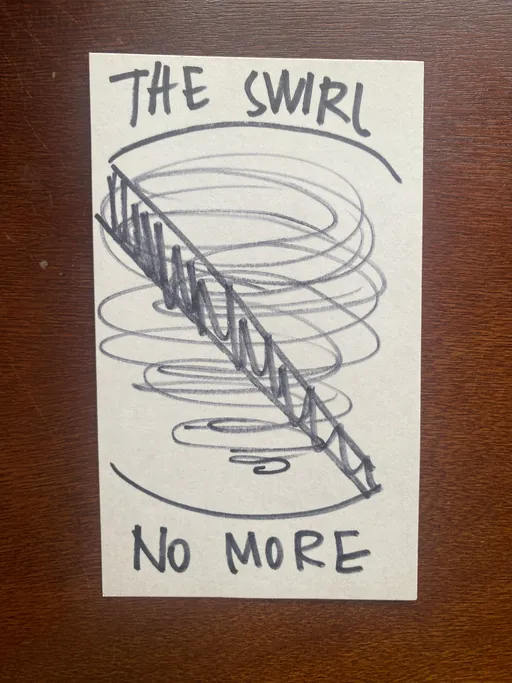 THE SWIRL
NO MORE